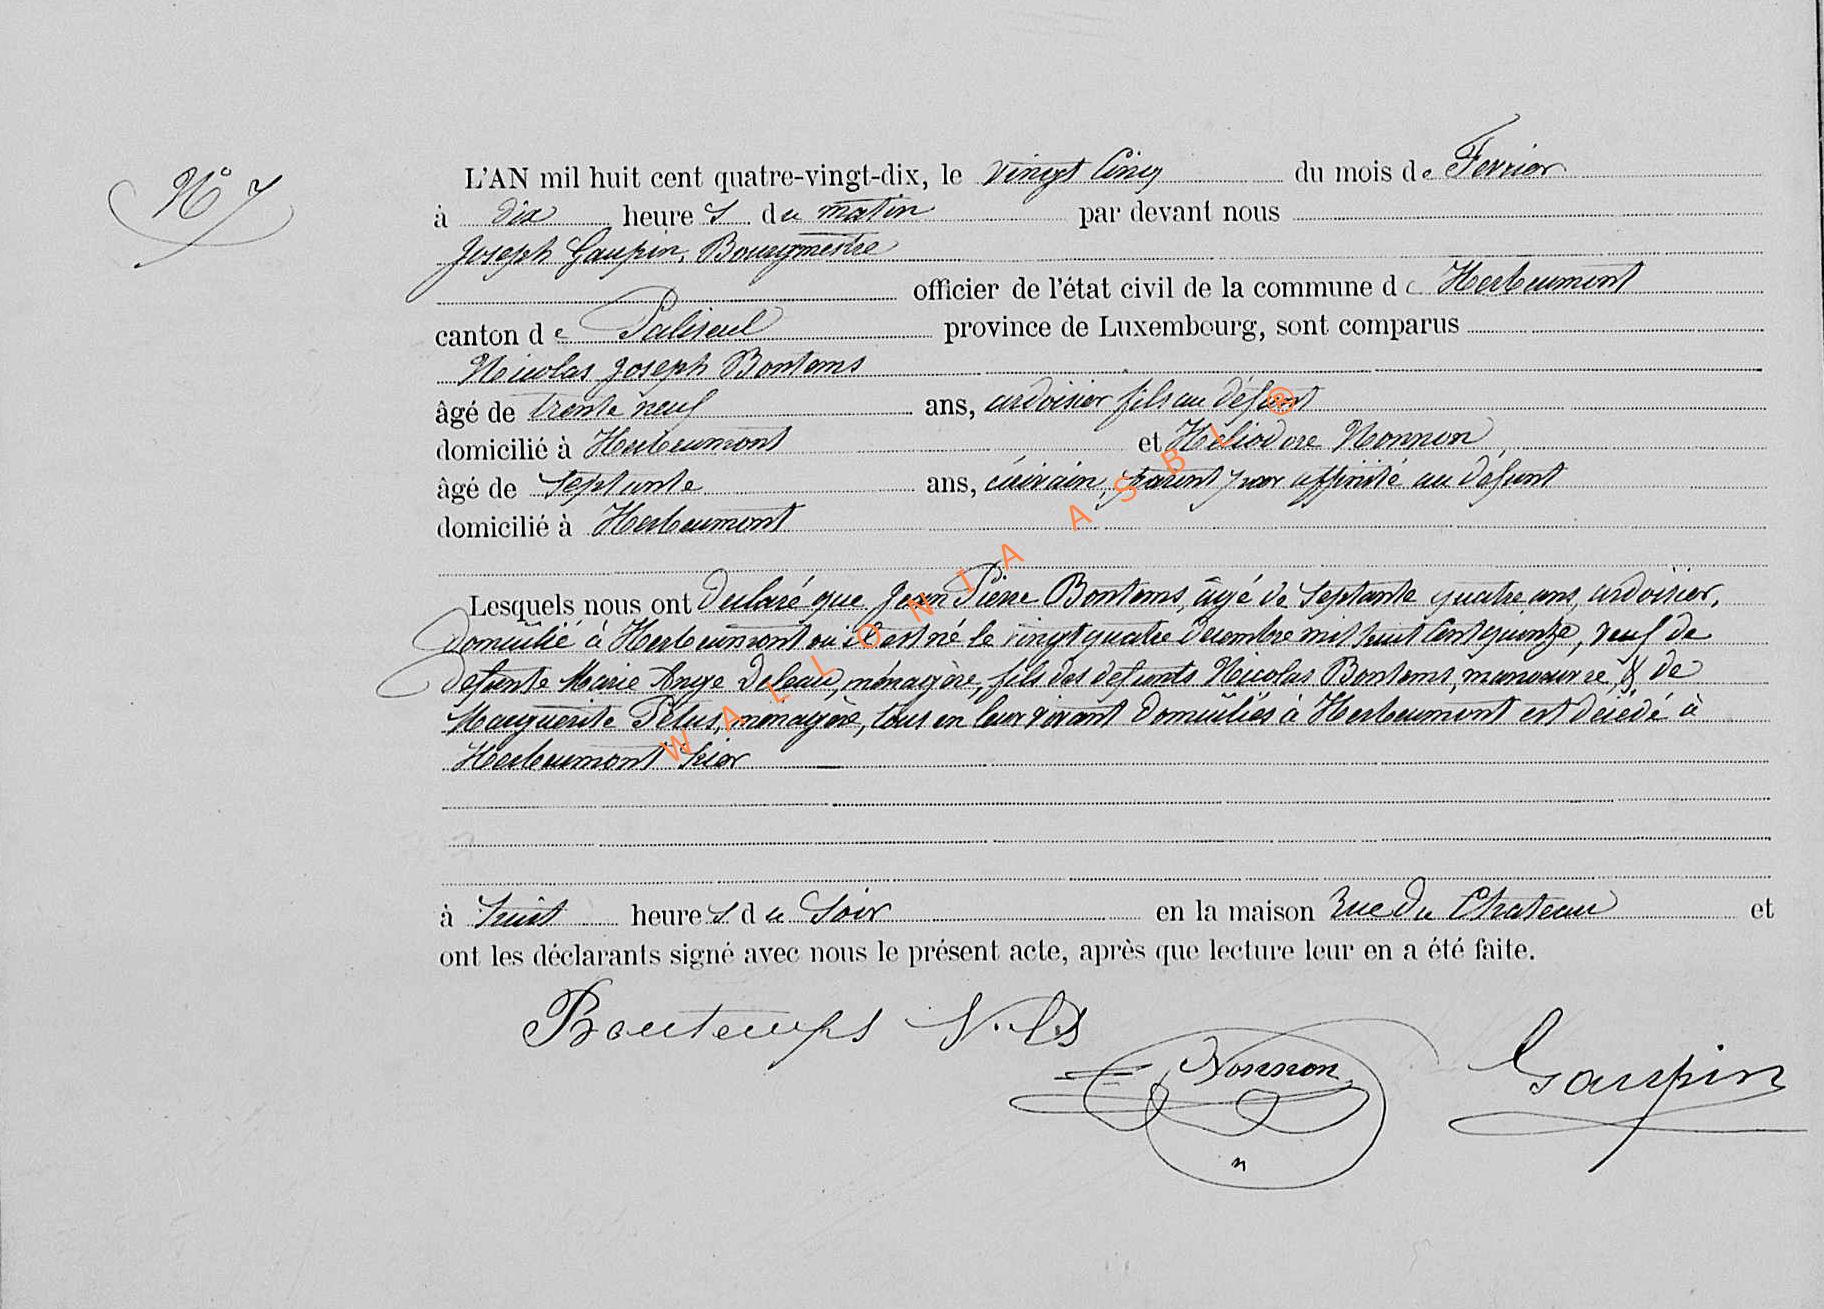 N° 7
L'AN mil huit cent quatre-vingt-dix, le vingt Cinq du mois de Fevrier
à dix heures du matin par devant nous
Joseph Gaupin, Bourgmestre
officier de l'état civil de la commune de Herbeumont
canton de Paliseul province de Luxembourg, sont comparus
Nicolas Joseph Bontems
âgé de trente neuf ans, ardoisier fils au défunt
domicilié à Herbeumont et Héliodore Nonnon,
âgé de Septante ans, écrivain, parent par affinité au défunt
domicilié à Herbeumont
Lesquels nous ont declaré que Jean Pierre Bontems, âgé de Septante quatre ans, ardoisier,
domicilié à Herbeumont où il est né le vingt quatre Décembre mil huit Cent quinze, veuf de
défunte Marie Ange Deleau, ménagère, fils des défunts Nicolas Bontems, manœuvre, & de
Marguerite Pétus, ménagère, tous en leur vivant domiciliés à Herbeumont est décédé à
Herbeumont hier
à huit heures du Soir en la maison Rue du Chateau et
ont les déclarants signé avec nous le présent acte, après que lecture leur en a été faite.
Bontemps N.
Nonnon
Gaupin
WALLONIA ASBL ®